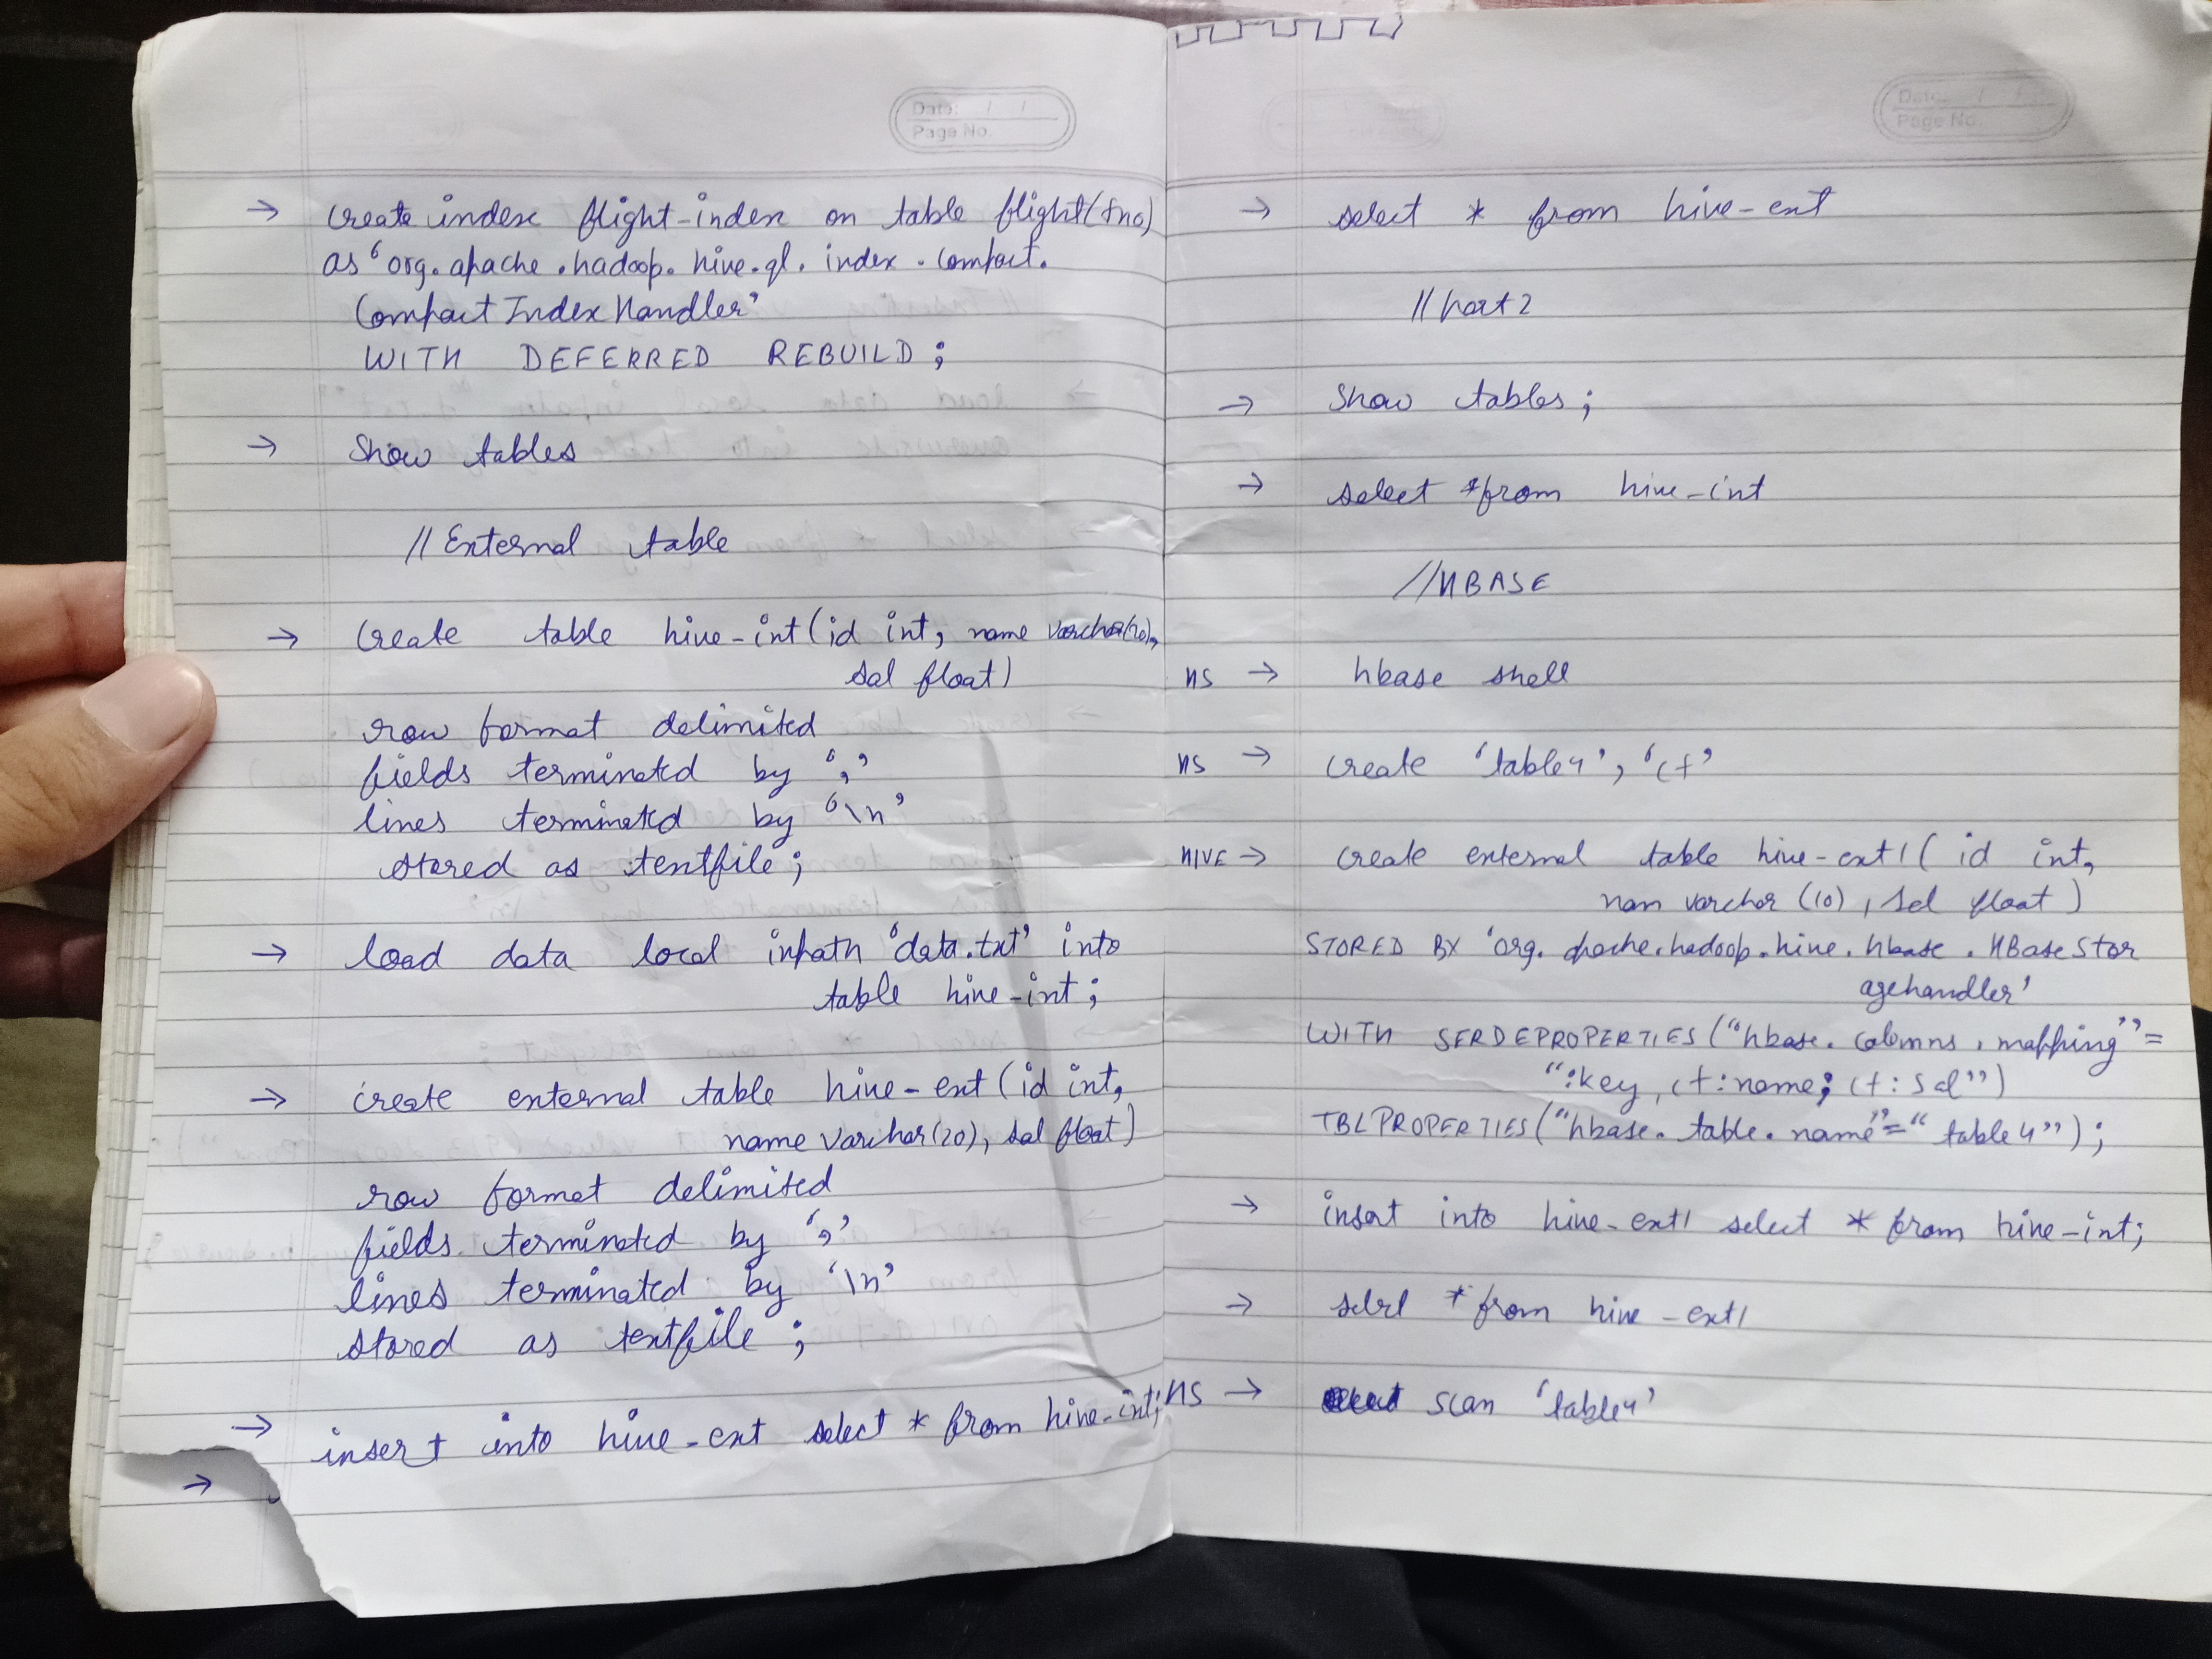 Date: / /
Page No.
→ create index flight-index on table flight(fno)
as 'org.apache.hadoop.hive.ql.index.compact.
CompactIndexHandler'
WITH DEFERRED REBUILD;
→ Show tables
// External table
→ create table hive-int(id int, name varchar(20),
sal float)
row format delimited
fields terminated by ','
lines terminated by '\n'
stored as textfile;
→ load data local inpath 'data.txt' into
table hive-int;
→ create external table hive-ext (id int,
name varchar(20), sal float)
row format delimited
fields terminated by ','
lines terminated by '\n'
stored as textfile;
→ insert into hive-ext select * from hive-int;
→
Date: / /
Page No.
→ select * from hive-ext
// Part 2
→ Show tables;
→ select * from hive-int
// HBASE
HS → hbase shell
HS → create 'table4', 'cf'
HIVE → create external table hive-ext1( id int,
nam varchar (10), sal float)
STORED BY 'org.apache.hadoop.hive.hbase.HBaseStor
agehandler'
WITH SERDEPROPERTIES("hbase.columns.mapping"=
":key, cf:name; cf:sal")
TBLPROPERTIES("hbase.table.name"="table4");
→ insert into hive-ext1 select * from hive-int;
→ * from hive-ext1
HS → scan 'table4'